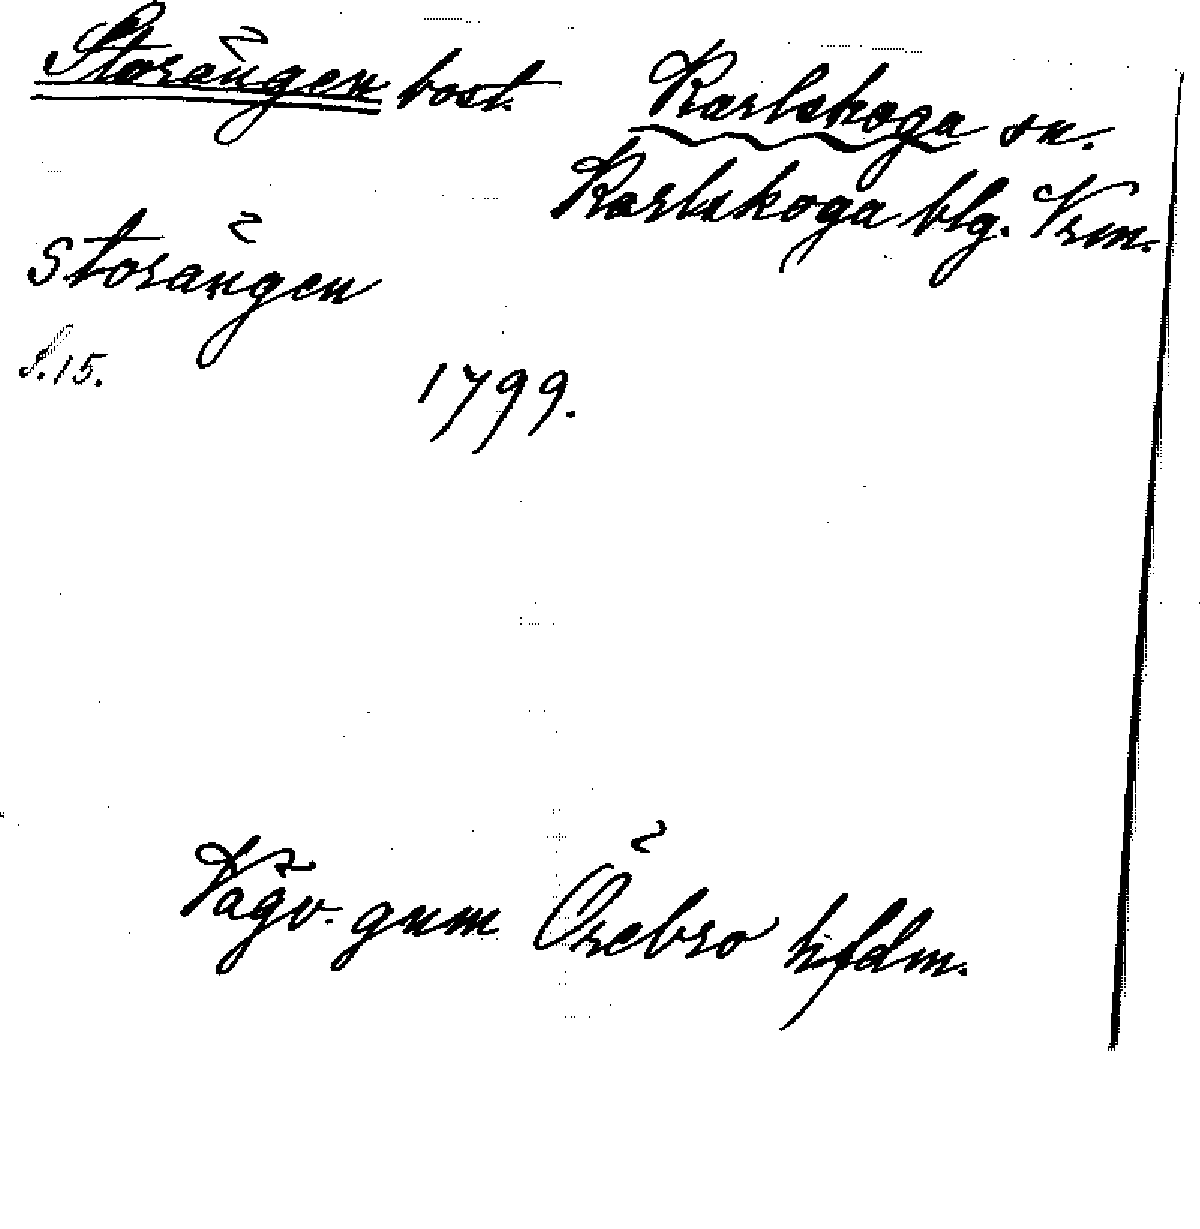 Storängen bost. Karlskoga sn.
Karlskoga blg. Vrm.
Storängen
S. 15.
1799.
Vägv. gnm Örebro hfdm.